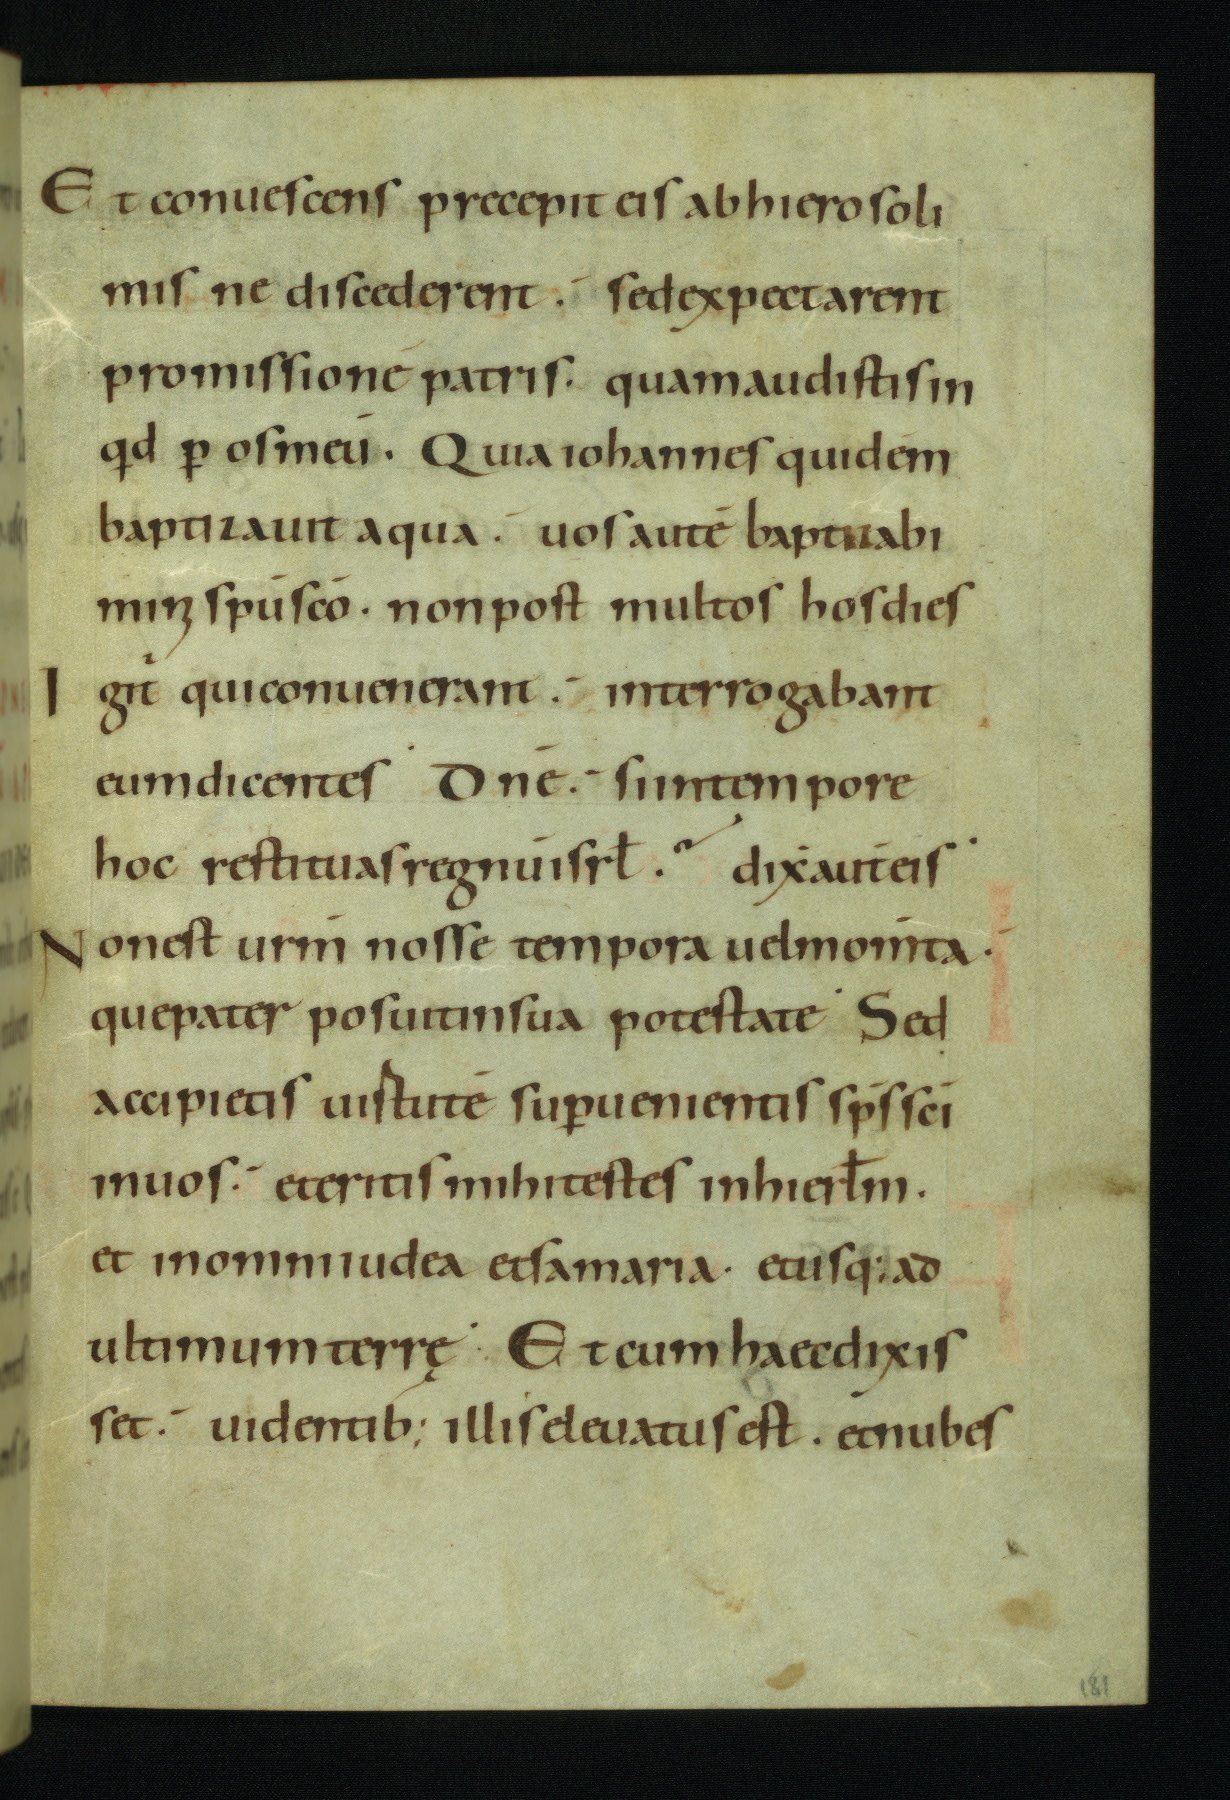 Et conuescens precepit eis ab hierosoli
mis ne discederent .- sed expectarent
promissionē patris . quam audistis in
qd ꝑ os meū . Quia iohannes quidem
baptizauit aqua .- uos autē baptizabi
miniꝫ spū scō . non post multos hos dies
Igit᷑ qui conuenerant .- interrogabant
eum dicentes Dnē .- si in tempore
hoc restituas regnū isrł . dix̄ aut̄ eis
Non est urm̄ nosse tempora uel momta .
que pater posuit in sua potestate Sed
accipietis uirtutē suꝑuenientis sp̄s sc̄i
in uos .- et eritis mihi testes in hierłm .
et in omni iudea et samaria . et usq; ad
ultimum terrę . Et cum haec dixis
set .- uidentib; illis eleuatus est . et nubes
181